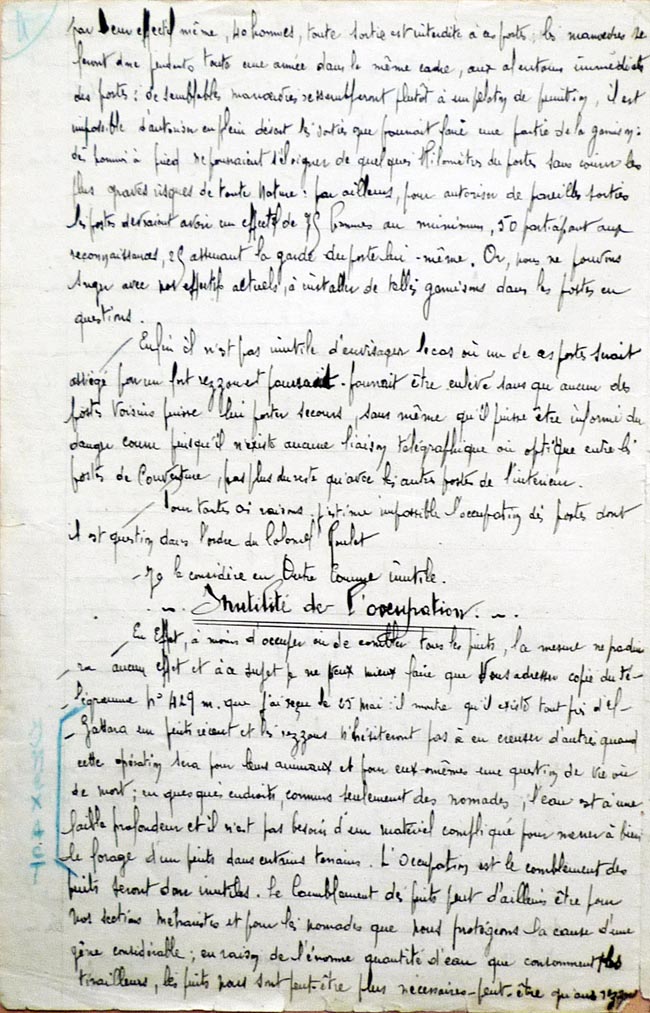 11
par leur effectif même, 40 hommes, toute sortie est interdite à ces postes; les manœuvres se
feront donc pendant toute une année dans le même cadre, aux alentours immédiats
des postes: de semblables manœuvres ressembleront plutôt à un peloton de punition, il est
impossible d'autoriser en plein désert les sorties que pourrait faire une partie de la garnison:
des hommes à pied ne pourraient s'éloigner de quelques Kilomètres du postes sans courir les
plus graves risques de toute nature: par ailleurs, pour autoriser de pareilles sorties
les postes devraient avoir un effectif de 75 hommes au minimum, 50 participant aux
reconnaissances, 25 assurant la garde du poste lui-même. Or, nous ne pouvons
songer avec nos effectifs actuels, à installer de telles garnisons dans les postes en
questions.
Enfin il n'est pas inutile d'envisager le cas où un de ces postes serait
assiégé par un fort rezzou et pourrait être enlevé sans que aucun des
postes voisins puisse lui porter secours, sans même qu'il puisse être informé du
danger couru puisqu'il n'existe aucune liaison télégraphique ou optique entre les
postes de Couverture, pas plus du reste qu'avec les autres postes de l'intérieur.
Pour toutes ces raisons j'estime impossible l'occupation des postes dont
il est question dans l'ordre du Colonel
Je la considère en Outre Comme inutile.
Inutilité de l'occupation.
En Effet, à moins d'occuper ou de combler tous les puits, la mesure ne produi
ra aucun effet et à ce sujet je ne peux mieux faire que Vous adresser copie du té-
légramme n° 429 m. que j'ai reçu le 25 mai: il montre qu'il existe tout près d'El-
Gattara un puits récent et les rezzous n'hésiteront pas à en creuser d'autres quand
cette opération sera pour leurs animaux et pour eux-mêmes une question de vie ou
de mort; en quelques endroits, connus seulement des nomades, l'eau est à une
faible profondeur et il n'est pas besoin d'un matériel compliqué pour mener à bien
le forage d'un puits dans certains terrains. L'Occupation et le comblement des
puits seront donc inutiles. Le Comblement des puits peut d'ailleurs être pour
nos sections méharistes et pour les nomades que nous protégeons la cause d'une
gêne considérable; en raison de l'énorme quantité d'eau que consomment les
tirailleurs, les puits nous sont peut-être plus nécessaires-peut-être qu'aux rezzou